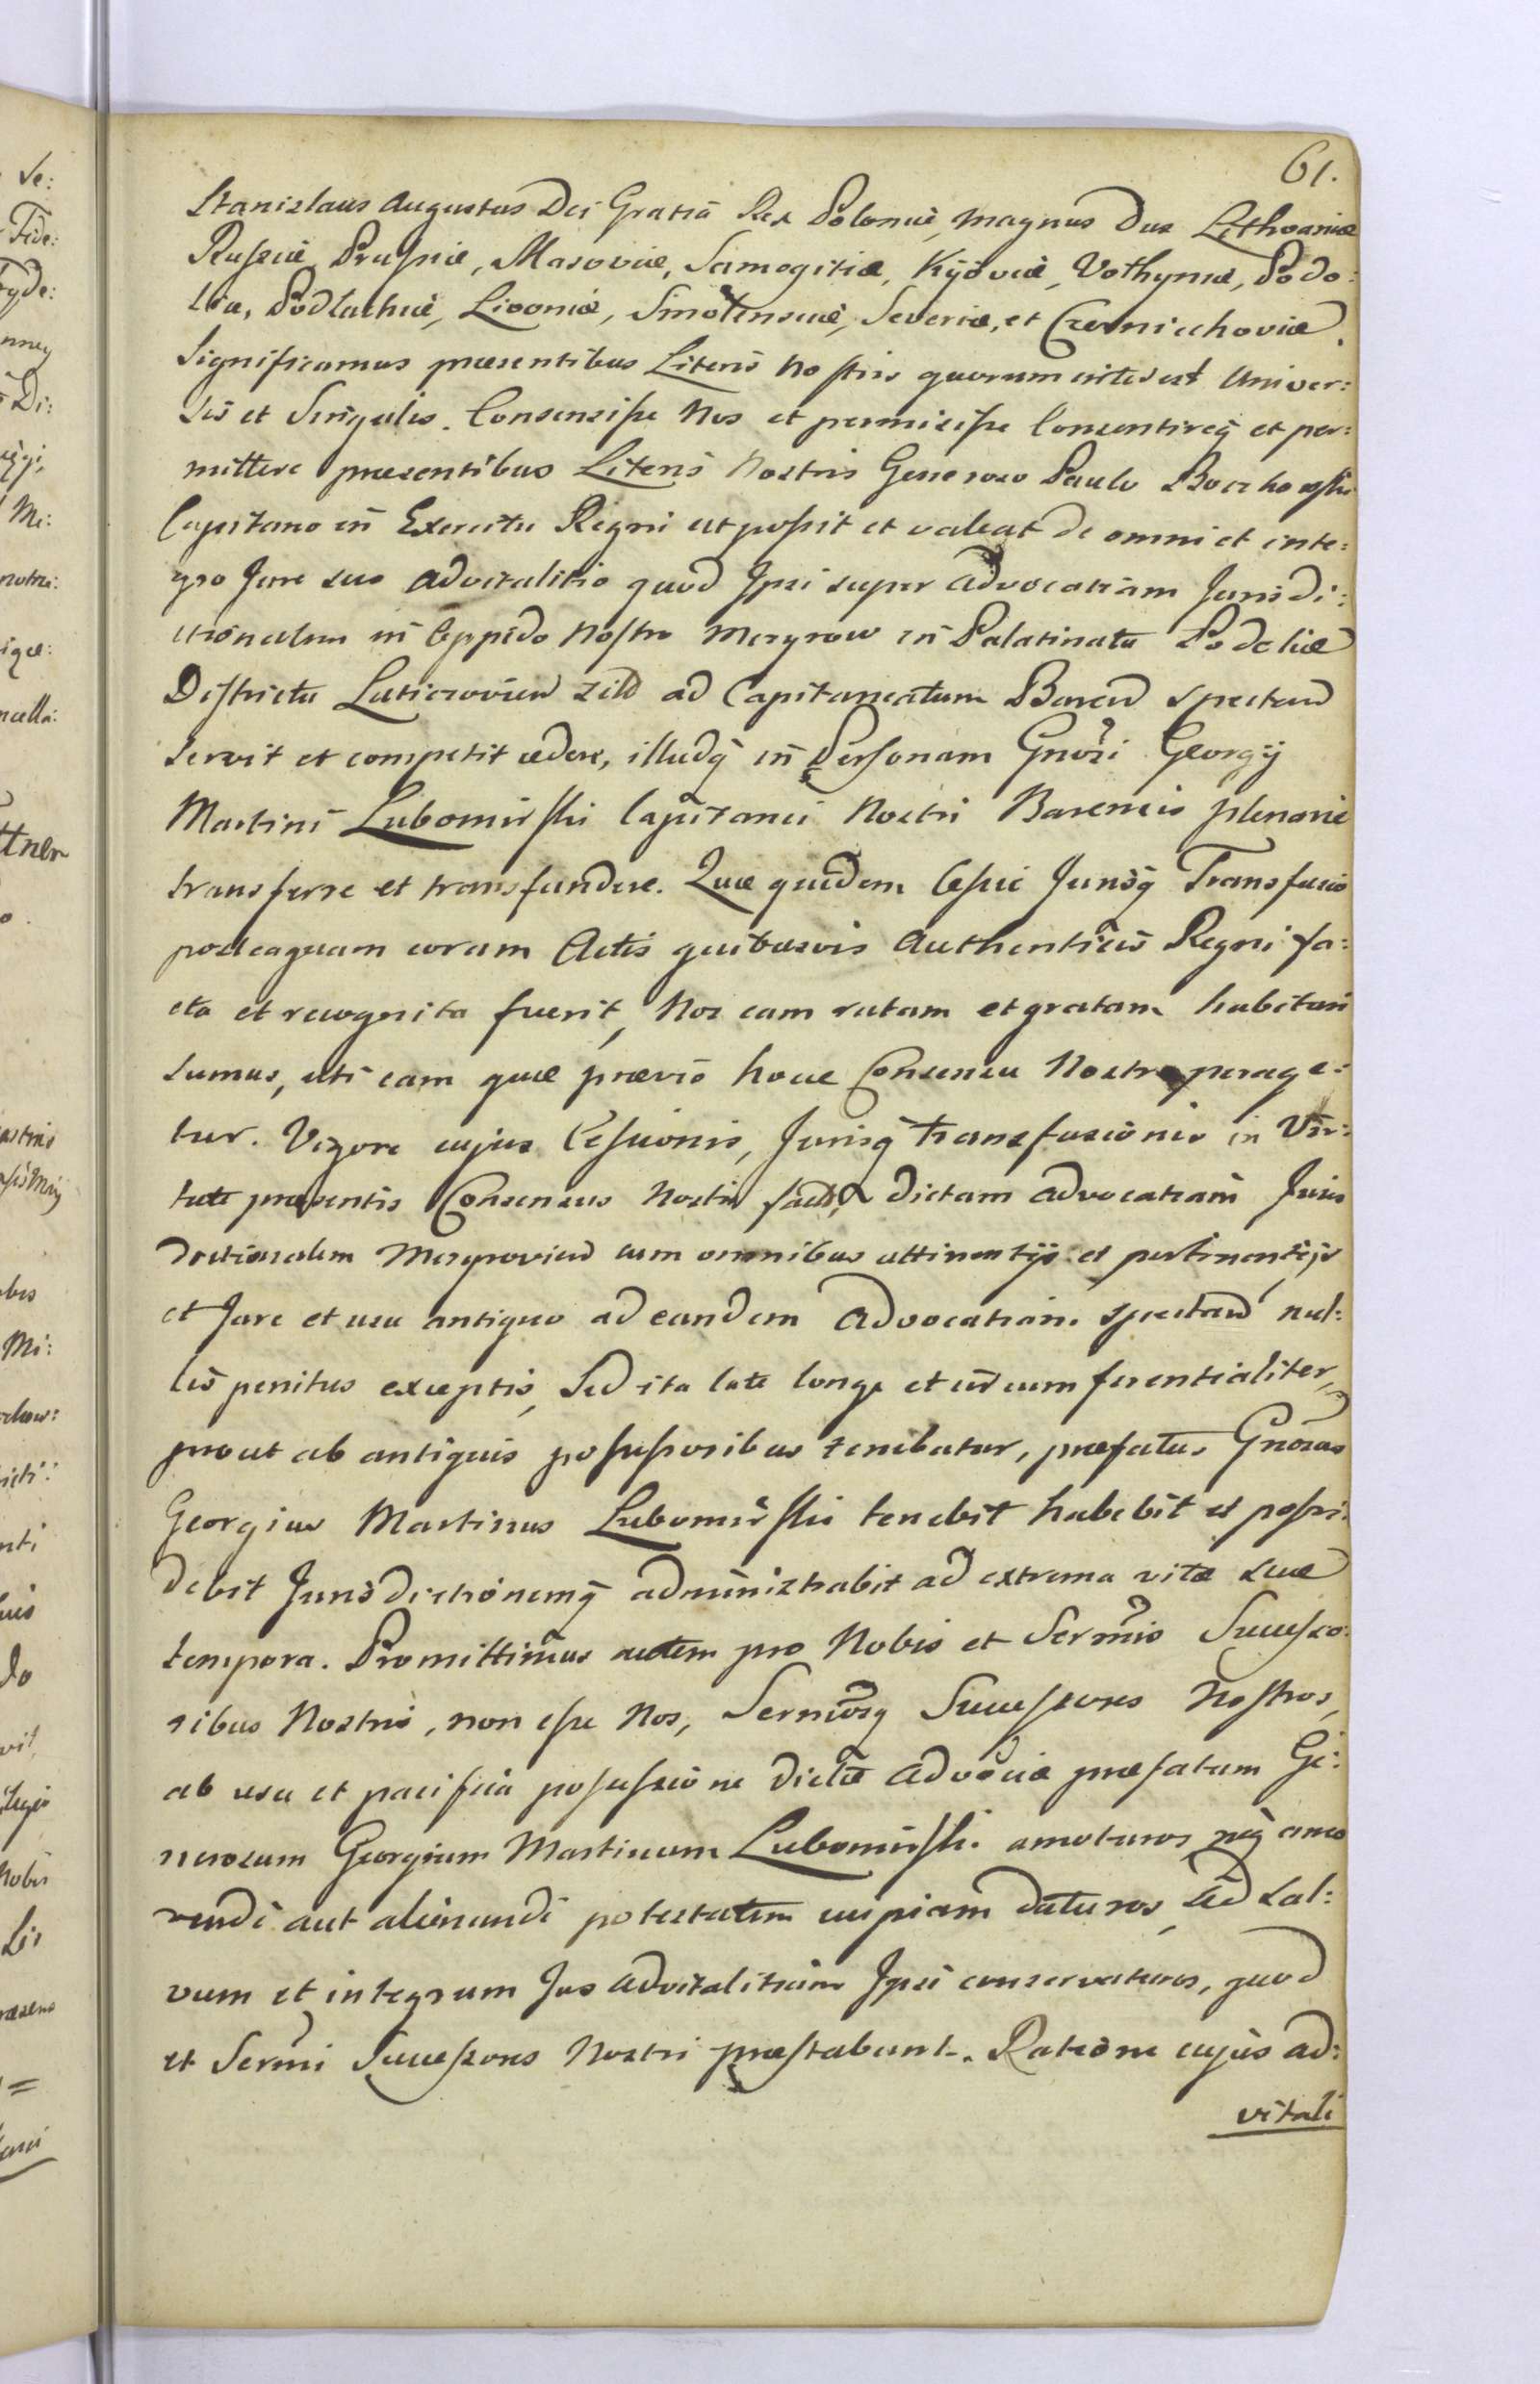 61.
Stanislaus Augustus Dei Gratiâ Rex Poloniæ, Magnus Dux Lithvaniæ
Russiæ, Prussiæ, Masoviæ, Samogitiæ, Kijoviæ, Volhyniæ, Podo:
liæ, Podlachiæ, Livoniæ, Smolensciæ, Severiæ, et Czerniechoviæ.
Significamus præsentibus Literis Nostris quorum interest Univer:
sis et Singulis. Consensisse Nos et permisisse Consentireq̃ et per:
mittere præsentibus Literis Nostris Generoso Paulo
Capitano in Exercitu Regni ut possit et valeat de omni et inte:
gro Jure suo advitalitio quod Ipsi super advocatiam Jurisdi:
ctionalem in Oppido Nostro Mezyrow in Palatinatu Podoliæ
Districtu Laticzovien sito ad Capitaneatum Baren spectan
servit et competit cedere, illudq̃ in Personam Gnosi Georgij
Martini Lubomirski Capitanei Nostri Barensis plenarie
transferre et transfundere. Quæ quidem Cessio Jurisq̃ Transfusio
posteaquam coram Actis quibusvis Authenticis Regni fa:
cta et recognita fuerit, Nos eam ratam et gratam habituri
sumus, uti eam quæ prævio hocce Consensu Nostro perage:
tur. Vigore cujus Cessionis, Jurisq̃ transfusionis in Vir:
tute præsentis Consensus Nostri factæ dictam advocatiam Juris
dictionalem Mezyrovien cum omnibus attinentijs et pertinentijs
et Jure et usu antiquo ad eandem advocatiam spectan nul:
lis penitus exceptis, Sed ita late longe et circumferentialiter,
prout ab antiquis possessoribus tenebatur, præfatus Gnosus
Georgius Martinus Lubomirski tenebit habebit et possi:
debit Jurisdictionemq̃ administrabit ad extrema vitæ suæ
tempora. Promittimus autem pro Nobis et Sermis Successo:
ribus Nostris, non esse Nos, Sermosq̃ Successores Nostros,
ab usu et pacifica possessione dictæ advociæ præfatum Ge:
nerosum Georgium Martinum Lubomirski amoturos neq̃ amo
vendi aut alienandi potestatem cuipiam daturos, sed sal:
vum et integrum Jus advitalitium Ipsi conservaturos, quod
et Sermi Successores Nostri præstabunt. Ratione cujus ad:
vitali